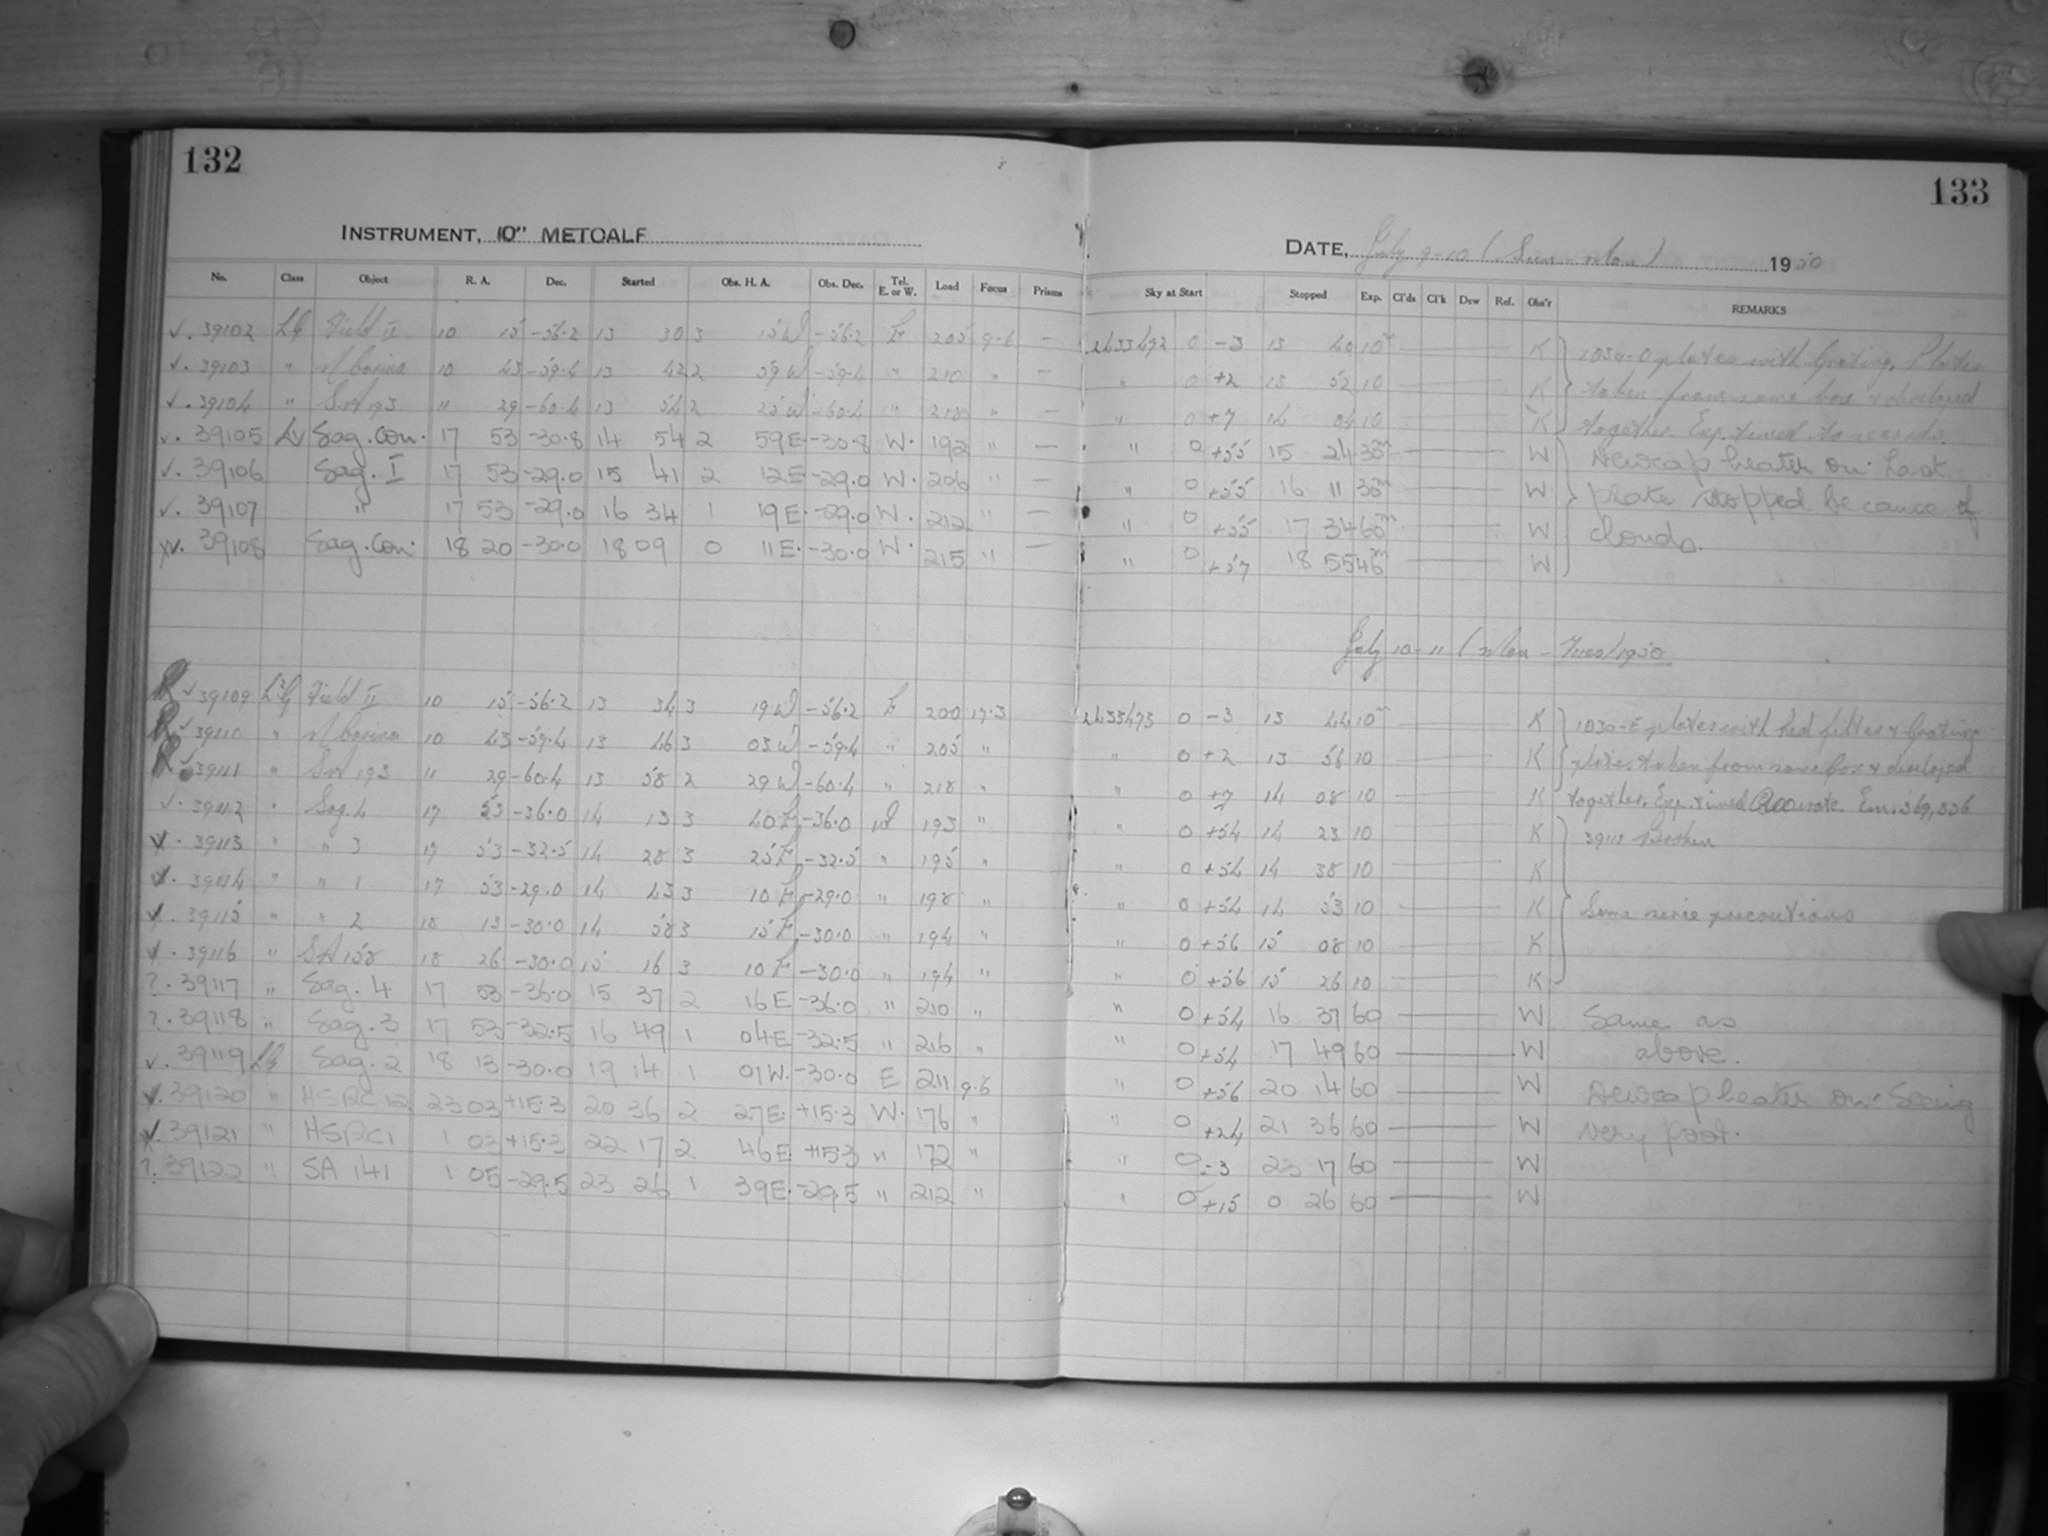 132
INSTRUMENT, 10" METCALF
No. Class Object R. A. Dec. Started Obs. H. A. Obs. Dec. Tel. E. or W. Load Focus Prisms
√. 39102 Field II 10 15 -56.2 13 30 3 15 W -56.2 E 205 9.6 —
√. 39103 " η Carina 10 43 -59.4 13 42 2 59 W -59.4 " 210 " —
√. 39104 " SA 193 11 29 -60.4 13 54 2 25 W -60.4 " 218 " —
√. 39105 Sag. Con. 17 53 -30.8 14 54 2 59 E -30.8 W. 192 " —
√. 39106 Sag. I 17 53 -29.0 15 41 2 12 E -29.0 W. 206 " —
√. 39107 " 17 53 -29.0 16 34 1 19 E. -29.0 W. 212 " —
39108 Sag. Con. 18 20 -30.0 18 09 0 11 E. -30.0 W. 215 " —
R √ 39109 Field II 10 15 -56.2 13 34 3 19 W -56.2 E 200 17.3
R √ 39110 " η Carina 10 43 -59.4 13 46 3 03 W -59.4 " 205 "
R √ 39111 " SA 193 11 29 -60.4 13 58 2 29 W -60.4 " 218 "
√. 39112 " Sag. 4 17 53 -36.0 14 13 3 40 E -36.0 W 193 "
√. 39113 " " 3 17 53 -32.5 14 28 3 25 E -32.5 " 195 "
√. 39114 " " 1 17 53 -29.0 14 43 3 10 E -29.0 " 198 "
√. 39115 " " 2 18 13 -30.0 14 58 3 15 E -30.0 " 194 "
√. 39116 " SA 158 18 26 -30.0 15 16 3 10 E -30.0 " 194 "
?. 39117 " Sag. 4 17 53 -36.0 15 37 2 16 E -36.0 " 210 "
?. 39118 " Sag. 3 17 53 -32.5 16 49 1 04 E -32.5 " 216 "
√. 39119 Sag. 2 18 13 -30.0 19 14 1 01 W. -30.0 E 211 9.6
√. 39120 " HSRC 12 23 03 +15.3 20 36 2 27 E. +15.3 W. 176 "
√. 39121 " HSRC 1 1 03 +15.3 22 17 2 46 E +15.3 " 172 "
?. 39122 " SA 141 1 05 -29.5 23 26 1 39 E. -29.5 " 212 "
133
DATE, July 9-10 (Sun - Mon) 1950
Sky at Start Stopped Exp. Cl'ds Cl'k Dew Ref. Obs'r REMARKS
2433472 0 -3 13 40 10m K 103a-O plates with Grating. Plates
" 0 +2 13 52 10 K taken from same box & developed
" 0 +7 14 04 10 K together. Exp. timed to seconds.
" 0 +55 15 24 30m W Dewcap heater on. Last
" 0 +55 16 11 30m W plate stopped because of
" 0 +55 17 34 60m W clouds.
" 0 +57 18 55 46m W
July 10-11 (Mon - Tues) 1950
2433473 0 -3 13 44 10m K 103a-E plates with Red filter & Grating
" 0 +2 13 56 10 K plates taken from same box & developed
" 0 +7 14 08 10 K together. Exp. timed Em. 369,536
" 0 +54 14 23 10 K 39111 Broken
" 0 +54 14 38 10 K
" 0 +54 14 53 10 K Same precautions
" 0 +56 15 08 10 K
" 0 +56 15 26 10 K
" 0 +54 16 37 60 W Same as
" 0 +54 17 49 60 W above.
" 0 +56 20 14 60 W Dewcap heater on. Seeing
" 0 +24 21 36 60 W very poor.
" 0 -3 23 17 60 W
" 0 +15 0 26 60 W